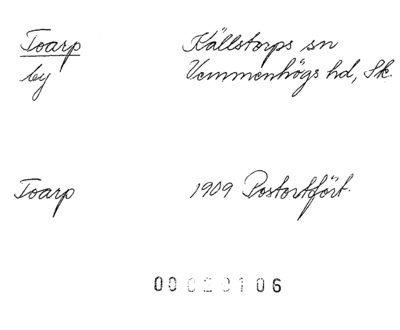 Toarp Källstorps sn
by Vemmenhögs hd, Sk.
Toarp 1909 Postortfört.